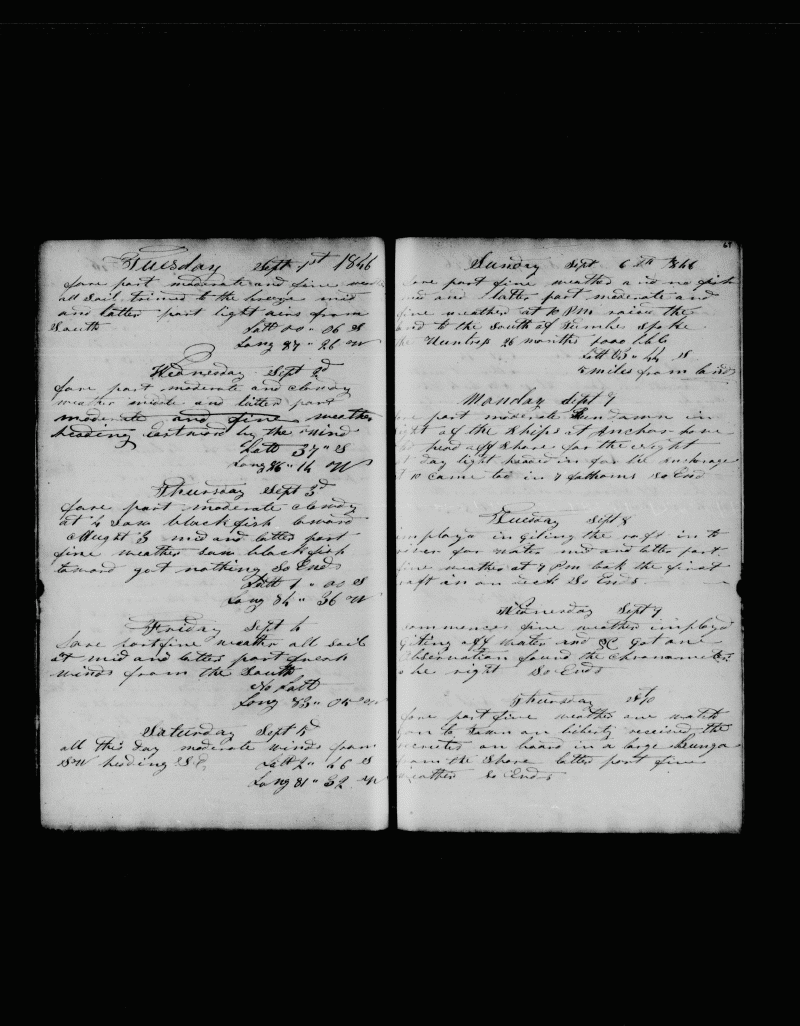 Tuesday Sept 1st 1846
fore part moderate and fine
all Sail trimed to the breeze mid
and latter part light airs from
South Latt 00 " 06 S
Long 87 " 26 W
Wednesday Sept 2d
fore part moderate and cloudy
weather middle and latter part
moderate and fine weather
heading Eastward by the Wind
Latt 37 " S
Long 86 " 14 W
Thursday Sept 3d
fore part moderate cloudy
at 4 Saw blackfish lowerd
Caught 3 mid and latter part
fine weather Saw blackfish
lowerd got nothing So Ends
Latt 1 " 02 S
Long 84 " 36 W
Friday Sept 4
fore part fine weather all Sail
at mid and latter part fresh
winds from the South
No Latt
Long 83 " 05 W
Saturday Sept 5
all this day moderate winds from
SW heading S.E. Latt 2 " 46 S
Long 81 " 32 W
67
Sunday Sept 6th 1846
part fine weather no fish
and latter part moderate and
fine weather at 10 PM
to the South of Tumbes Spoke
the 26 months
Latt 03 " 44 S
5 miles from land
Monday Sept 7
part moderate
of the Ships at Anchor
head off Shore for the night
day light headed in for the anchorage
10 came to in 7 fathoms So End
Tuesday Sept 8
in giting the raft in to
river for water mid and latter part
fine weather at 7 PM took the first
raft in on deck So Ends
Wednesday Sept 9
commences fine weather imployd
giting off water and &C Got an
observation found the Chronometer
be right So Ends
Thursday 10
fore part fine weather one watch
gon to town on liberty received the
recruits on board in a large
from the Shore latter part fine
weather So Ends